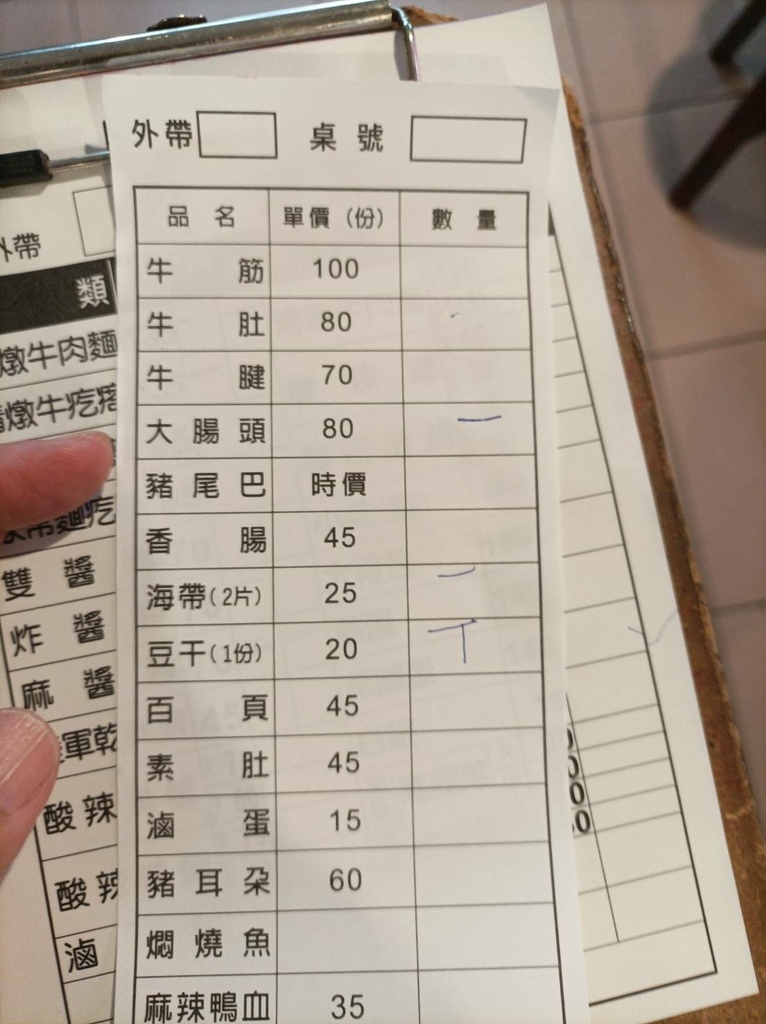 外帶 桌號
品名 單價(份) 數量
牛筋 100
牛肚 80
牛腱 70
大腸頭 80 一
豬尾巴 時價
香腸 45
海帶(2片) 25 一
豆干(1份) 20 丅
百頁 45
素肚 45
滷蛋 15
豬耳朵 60
燜燒魚
麻辣鴨血 35
外帶
類
燉牛肉麵
燉牛疙瘩
雙醬
炸醬
麻醬
軍乾
酸辣
酸辣
滷